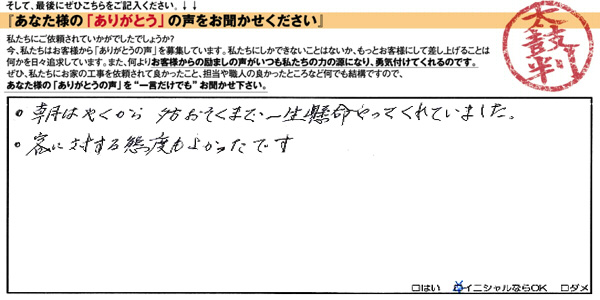 そして、最後にぜひこちらをご記入ください。↓↓
『あなた様の「ありがとう」の声をお聞かせください』
私たちにご依頼されていかがでしたでしょうか?
今、私たちはお客様から「ありがとうの声」を募集しています。私たちにしかできないことはないか、もっとお客様にして差し上げることは
何かを日々追求しています。また、何よりお客様からの励ましの声がいつも私たちの力の源になり、勇気付けてくれるのです。
ぜひ、私たちにお家の工事を依頼されて良かったこと、担当や職人の良かったところなど何でも結構ですので、
あなた様の「ありがとうの声」を“一言だけでも”お聞かせ下さい。
太鼓判
・朝はやくから 夕方おそくまで、一生懸命やってくれていました。
・客に対する態度もよかったです
□はい ☑イニシャルならOK □ダメ